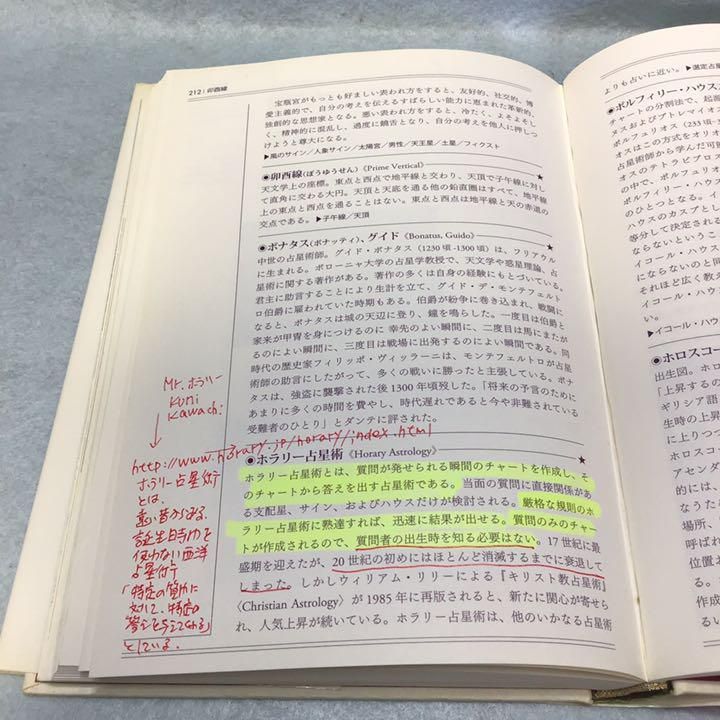 212 | 卯酉線
宝瓶宮がもっとも好ましい表われ方をすると、友好的、社交的、博
愛主義的で、自分の考えを伝えるすばらしい能力に恵まれた革新的、
独創的な思想家となる。悪い表われ方をすると、冷たく、よそよそし
く、精神的に混乱し、過度に饒舌となり、自分の考えを他人に押しつ
けようと尊大になる。
▶風のサイン／人象サイン／太陽宮／男性／天王星／土星／フィクスト
◉卯酉線(ぼうゆうせん)《Prime Vertical》 ★
天文学上の座標。東点と西点で地平線と交わり、天頂で子午線に対し
て直角に交わる大円。天頂と天底を通る他の鉛直圏はすべて、地平線
上の東点と西点を通ることはない。東点と西点は地平線と天の赤道の
交点である。▶子午線／天頂
◉ボナタス(ボナッティ)、グイド《Bonatus, Guido》 ★
中世の占星術師。グイド・ボナタス（1230頃-1300頃）は、フリアウル
に生まれる。ボローニャ大学の占星学教授で、天文学や惑星理論、占
星術に関する著作がある。著作の多くは自身の経験にもとづいている。
君主に助言することにより生計を立て、グイド・デ・モンテフェルト
ロ伯爵に雇われていた時期もある。伯爵が紛争に巻き込まれ、戦闘に
なると、ボナタスは城の天辺に登り、鐘を鳴らした。一度目は伯爵と
家来が甲冑を身につけるのに幸先のよい瞬間に、二度目は馬にまたが
るのによい瞬間に、三度目は戦場に出発するのによい瞬間である。同
時代の歴史家フィリッポ・ヴィッラーニは、モンテフェルトロが占星
術師の助言にしたがって、多くの戦いに勝ったと主張している。ボナ
タスは、強盗に襲撃された後1300年頃歿した。「将来の予言のために
あまりに多くの時間を費やし、時代遅れであると今や非難されている
受難者のひとり」とダンテに評された。
◉ホラリー占星術《Horary Astrology》 ★
ホラリー占星術とは、質問が発せられる瞬間のチャートを作成し、そ
のチャートから答えを出す占星術である。当面の質問に直接関係があ
る支配星、サイン、およびハウスだけが検討される。厳格な規則のホ
ラリー占星術に熟達すれば、迅速に結果が出せる。質問のみのチャー
トが作成されるので、質問者の出生時を知る必要はない。17世紀に最
盛期を迎えたが、20世紀の初めにはほとんど消滅するまでに衰退して
しまった。しかしウィリアム・リリーによる『キリスト教占星術』
〈Christian Astrology〉が1985年に再版されると、新たに関心が寄せら
れ、人気上昇が続いている。ホラリー占星術は、他のいかなる占星術
Mr. ホラリー
Kuni
Kawachi
http://www.horary.jp/horary/index.html
ホラリー占星術
とは、
遠い昔からある
誕生日時を
使わない西洋
占星術
「特定の質問に
対して、特定の
答えを与えてくれる」
としている。
よりも占いに近い。▶選定占
◉ポルフィリー・ハウス
チャートの分割法で、起源
ヌスおよびプトレマイオ
ポルフュリオス（233頃-3
オスはこの方式をオリ
占星術師から学んだ可能
オスのテトラビブロス
の中で、ポルフュリオ
ポルフィリー・ハウス
のひとつとなる。イコ
ハウスのカスプとし
等分して決定される
ならないというこ
イコール・ハウス
にならないのと同
それほど広く教え
イコール・ハウス
い。
▶イコール・ハウ
◉ホロスコー
出生図。ホロ
「上昇するの
ギリシア語
生時の上昇
に上りつつ
ホロスコー
アセンダ
的には、
うなもの
場所、
呼ばれ
位置お
の